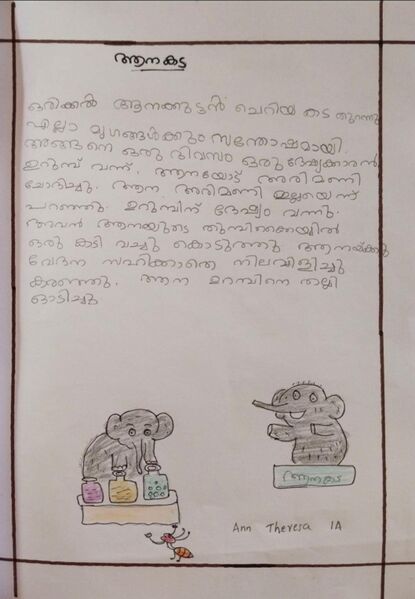 ആനകട
ഒരിക്കൽ ആനക്കുട്ടൻ ചെറിയ കട തുറന്നു
എല്ലാ മൃഗങ്ങൾക്കും സന്തോഷമായി.
അങ്ങനെ ഒരു ദിവസം ഒരു ദേഷ്യക്കാരൻ
ഉറുമ്പ് വന്ന്, ആനയോട് അരിമണി
ചോദിച്ചു. ആന അരിമണി ഇല്ലയെന്ന്
പറഞ്ഞു. ഉറുമ്പിന് ദേഷ്യം വന്നു.
അവൻ ആനയുടെ തുമ്പിക്കൈയിൽ
ഒരു കടി വച്ചു കൊടുത്തു ആനയ്ക്കു
വേദന സഹിക്കാതെ നിലവിളിച്ചു
കരഞ്ഞു. ആന ഉറമ്പിനെ തല്ലി
ഓടിച്ചു
ആനകട
Ann Theresa 1A